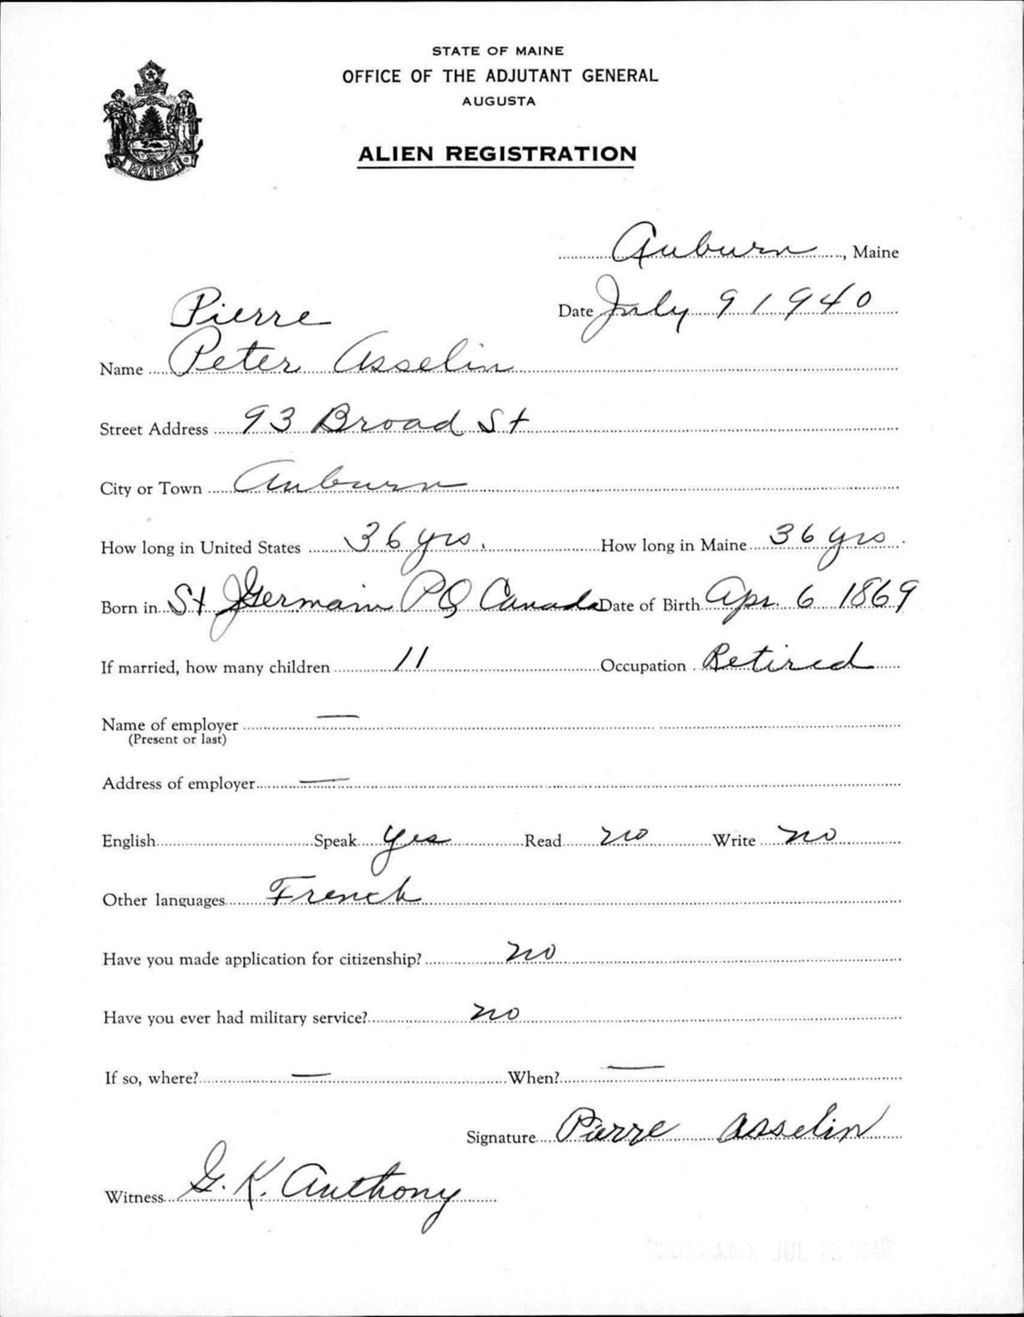 STATE OF MAINE
OFFICE OF THE ADJUTANT GENERAL
AUGUSTA
ALIEN REGISTRATION
MAINE
Auburn, Maine
Date July 9 1940
Pierre
Name Peter Asselin
Street Address 93 Broad St
City or Town Auburn
How long in United States 36 yrs. How long in Maine 36 yrs
Born in St Germain PQ Canada Date of Birth Apr. 6 1869
If married, how many children 11 Occupation Retired
Name of employer —
(Present or last)
Address of employer —
English Speak yes Read no Write no
Other languages French
Have you made application for citizenship? no
Have you ever had military service? no
If so, where? — When? —
Signature Pierre Asselin
Witness G. K. Anthony
A.G.O. JUL 1940